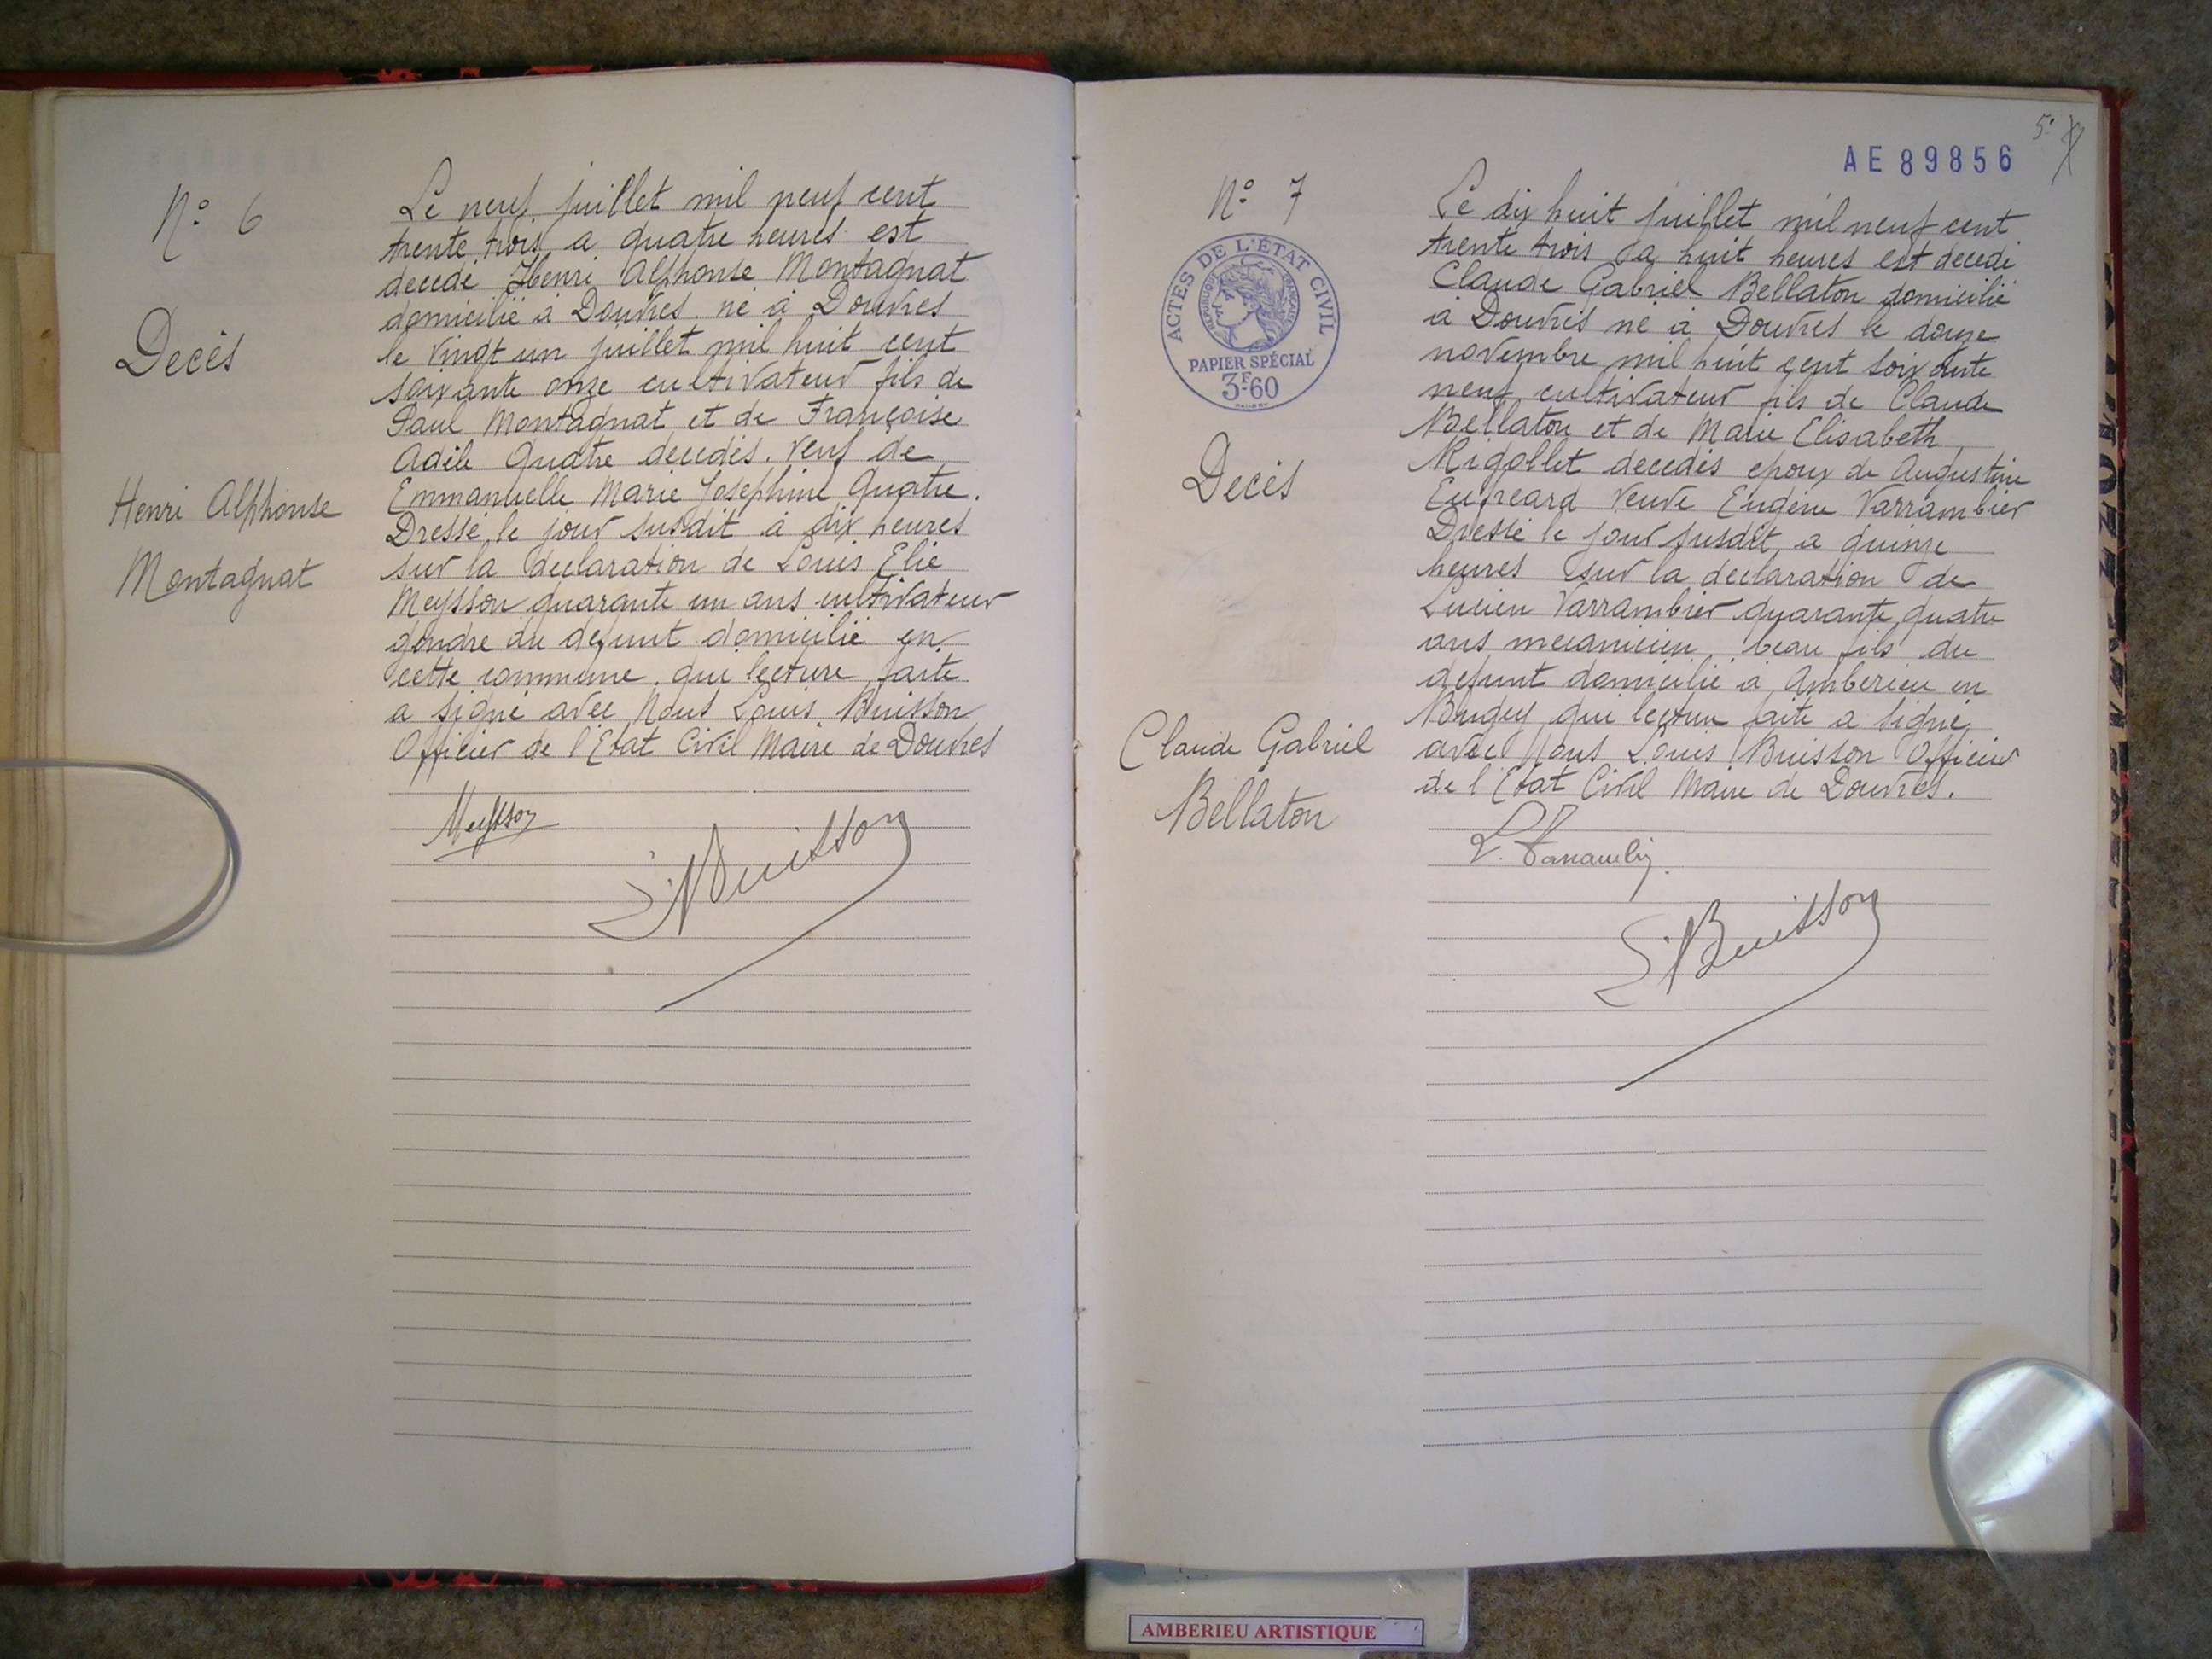 N° 6
Décès
Henri Alphonse
Montagnat
Le neuf juillet mil neuf cent
trente trois a quatre heures est
decedé Henri Alphonse Montagnat
domicilié à Douvres né à Douvres
le vingt un juillet mil huit cent
soixante onze cultivateur fils de
Paul Montagnat et de Françoise
Adèle Quatre decedés. Veuf de
Emmanuelle Marie Joséphine Quatre.
Dressé le jour susdit à dix heures
sur la déclaration de Louis Elie
Meysson quarante un ans cultivateur
gendre du defunt domicilié en
cette commune, qui lecture faite
a signé avec Nous Louis Buisson
Officier de l'Etat Civil Maire de Douvres
Meysson
L. Buisson
5
AE 89856
N° 7
ACTES DE L'ÉTAT CIVIL
RÉPUBLIQUE FRANÇAISE
PAPIER SPÉCIAL
3F60
Décès
Claude Gabriel
Bellaton
Le dix huit juillet mil neuf cent
trente trois a huit heures est decedé
Claude Gabriel Bellaton domicilié
à Douvres né à Douvres le douze
novembre mil huit cent soixante
neuf cultivateur fils de Claude
Bellaton et de Marie Elisabeth
Rigollet decedés epoux de Augustine
veuve Eugène Varrambier
Dressé le jour susdit, a quinze
heures sur la declaration de
Lucien Varrambier quarante quatre
ans mecanicien, beau fils du
defunt domicilié à Amberieu en
Bugey qui lecture faite a signé
avec Nous Louis Buisson Officier
de l'Etat Civil Maire de Douvres.
L. Buisson
AMBERIEU ARTISTIQUE